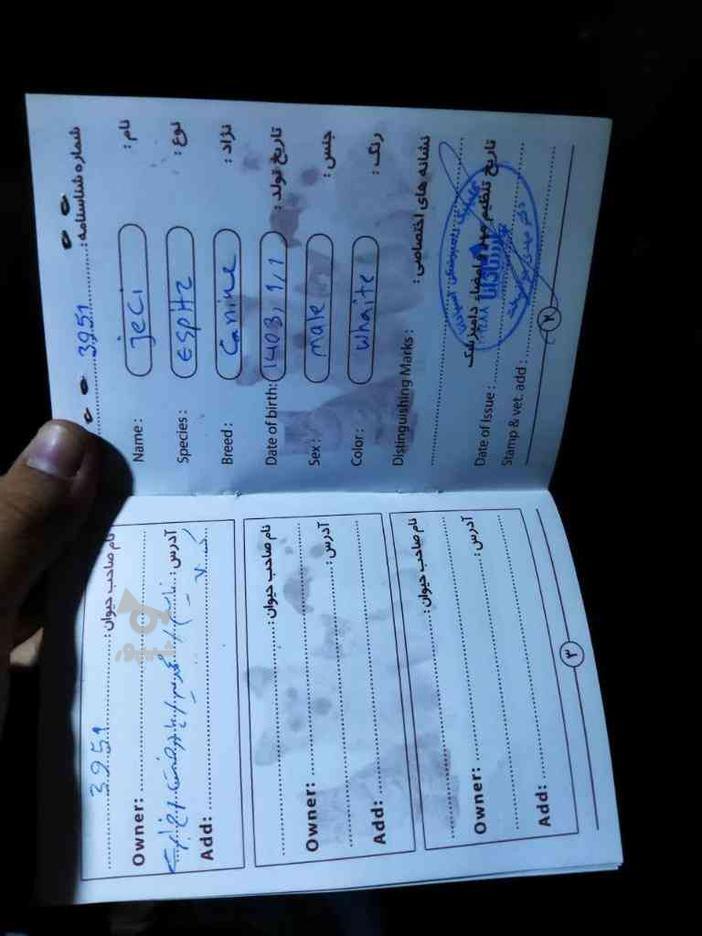 شماره شناسنامه : 3951
Name : jeci نام :
Species : espHz نوع :
Breed : Canine نژاد :
Date of birth: 1403, 1,1 تاریخ تولد :
Sex : male جنس :
Color : whaite رنگ :
Distinguishing Marks : نشانه های اختصاصی :
Date of Issue : تاریخ تنظیم مهر و امضاء دامپزشک
Stamp & vet. add :
۲
3951 نام صاحب حیوان :
Owner:
آدرس :
Add:
نام صاحب حیوان :
Owner:
آدرس :
Add:
نام صاحب حیوان :
Owner:
آدرس :
Add:
۳